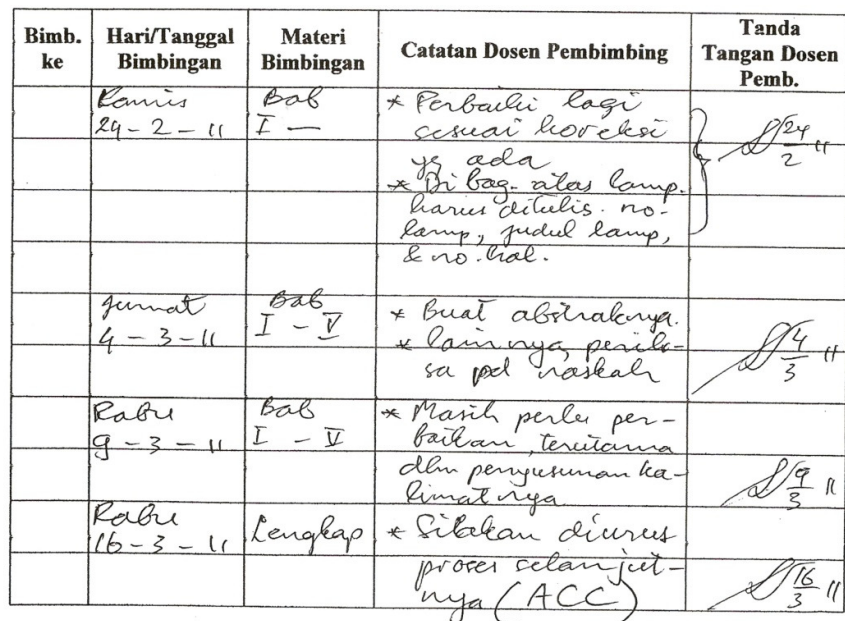 Bimb. ke Hari/Tanggal Bimbingan Materi Bimbingan Catatan Dosen Pembimbing Tanda Tangan Dosen Pemb.
Kamis Bab * Perbaiki lagi
24 - 2 - 11 I — sesuai koreksi 24/2 11
yg ada
* Di bag. atas lamp.
harus ditulis no.
lamp, judul lamp,
& no. hal.
Jumat Bab * Buat abstraknya.
4 - 3 - 11 I - V * lainnya, perik-
sa pd naskah 4/3 11
Rabu Bab * Masih perlu per-
9 - 3 - 11 I - V baikan, terutama
dlm penyusunan ka-
limatnya 9/3 11
Rabu
16 - 3 - 11 Lengkap * Silakan diurus
proses selanjut-
nya (ACC) 16/3 11